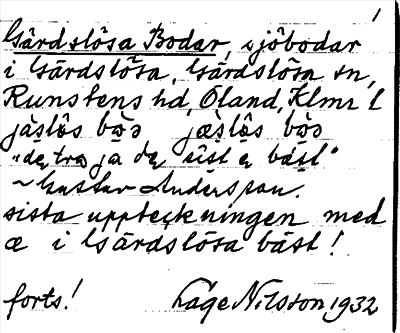 1
Gärdslösa Bodar, sjöbodar
i Gärdslösa, Gärdslösa sn,
Runstens hd, Öland, Klmr l
"de tror ja de sist e bäst"
~ Gustav Andersson.
sista uppteckningen med
æ i Gärdslösa bäst!
forts! Lage Nilsson 1932